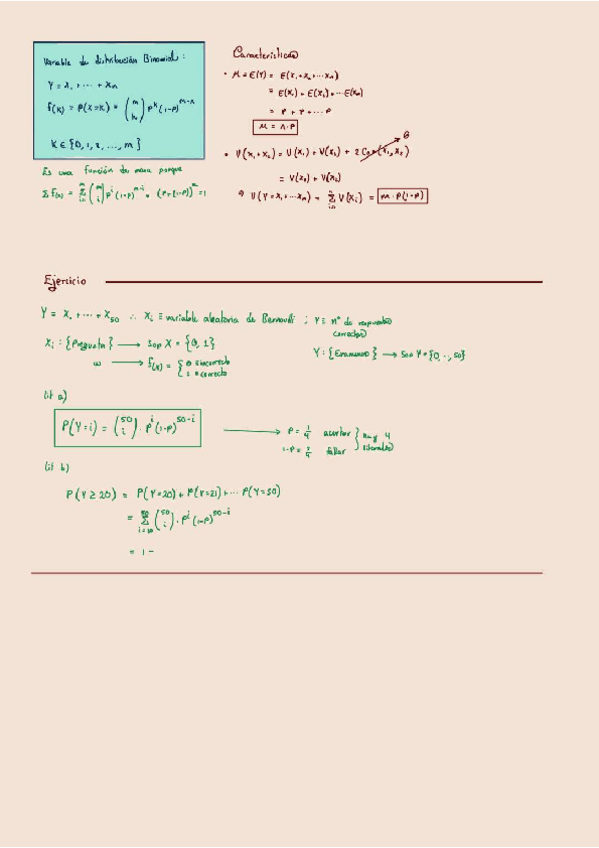 Variable de distribución Binomial :
Y = X₁ + ··· + Xₙ
f(k) = P(X=k) = (n k) pᵏ (1-p)ⁿ⁻ᵏ
k ∈ {0, 1, 2, ..., n}
Es una función de masa porque
Σ f(x) = Σ (n i) pⁱ (1-p)ⁿ⁻ⁱ = (p+(1-p))ⁿ = 1
Características
• μ = E(Y) = E(X₁+X₂+···Xₙ)
= E(X₁) + E(X₂) + ··· E(Xₙ)
= P + P + ··· P
μ = n · p
• V(X₁+X₂) = V(X₁) + V(X₂) + 2 Cov(X₁, X₂) 0
= V(X₁) + V(X₂)
V(Y = X₁ + ··· Xₙ) = Σ V(Xᵢ) = n · p(1-p)
Ejercicio
Y = X₁ + ··· + X₅₀ ∴ Xᵢ ≡ variable aleatoria de Bernoulli ; Y ≡ nº de respuestas
correctas
Xᵢ : {Pregunta} → Sop X = {0, 1}
Y : {Examenes} → Sop Y = {0, .., 50}
ω → f(x) = { 0 si incorrecto
1 correcto
lit a)
P(Y=i) = (50 i) · pⁱ (1-p)⁵⁰⁻ⁱ
→ P = 1/4 acertar
1-p = fallar
hay 4
lit b)
P(Y ≥ 20) = P(Y=20) + P(Y=21) + ··· P(Y=50)
= Σ (50 i) · pⁱ (1-p)⁵⁰⁻ⁱ
= 1 -